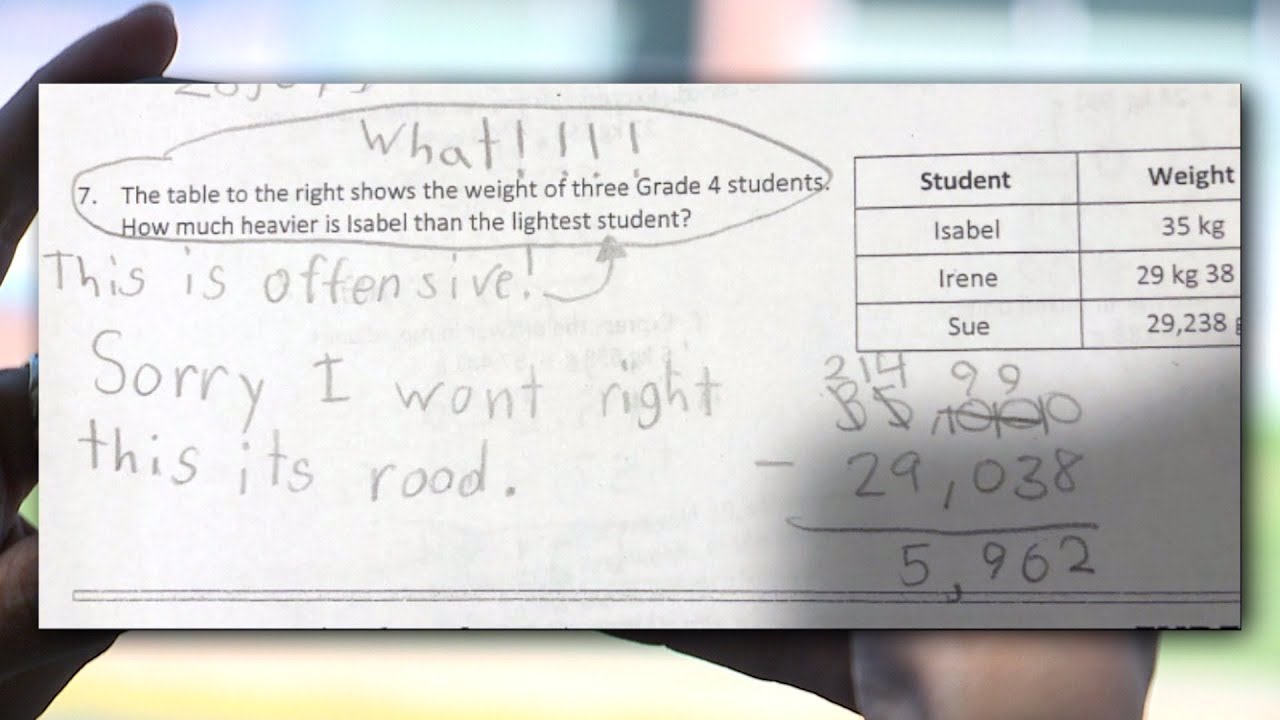 What!!!!
7. The table to the right shows the weight of three Grade 4 students.
How much heavier is Isabel than the lightest student?
This is offensive!
Sorry I wont right
this its rood.
Student Weight
Isabel 35 kg
Irene 29 kg 38
Sue 29,238 g
2 14 9 9
35,000
- 29,038
5,962